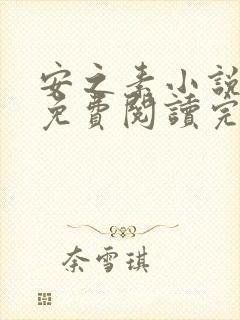 安之素小說
免費閱讀完
奈雪琪